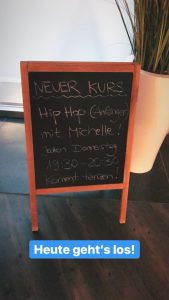 NEUER KURS
Hip Hop (Anfänger)
mit Michelle!
Jeden Donnerstag
19:30 - 20:30
Kommt tanzen!
Heute geht's los!